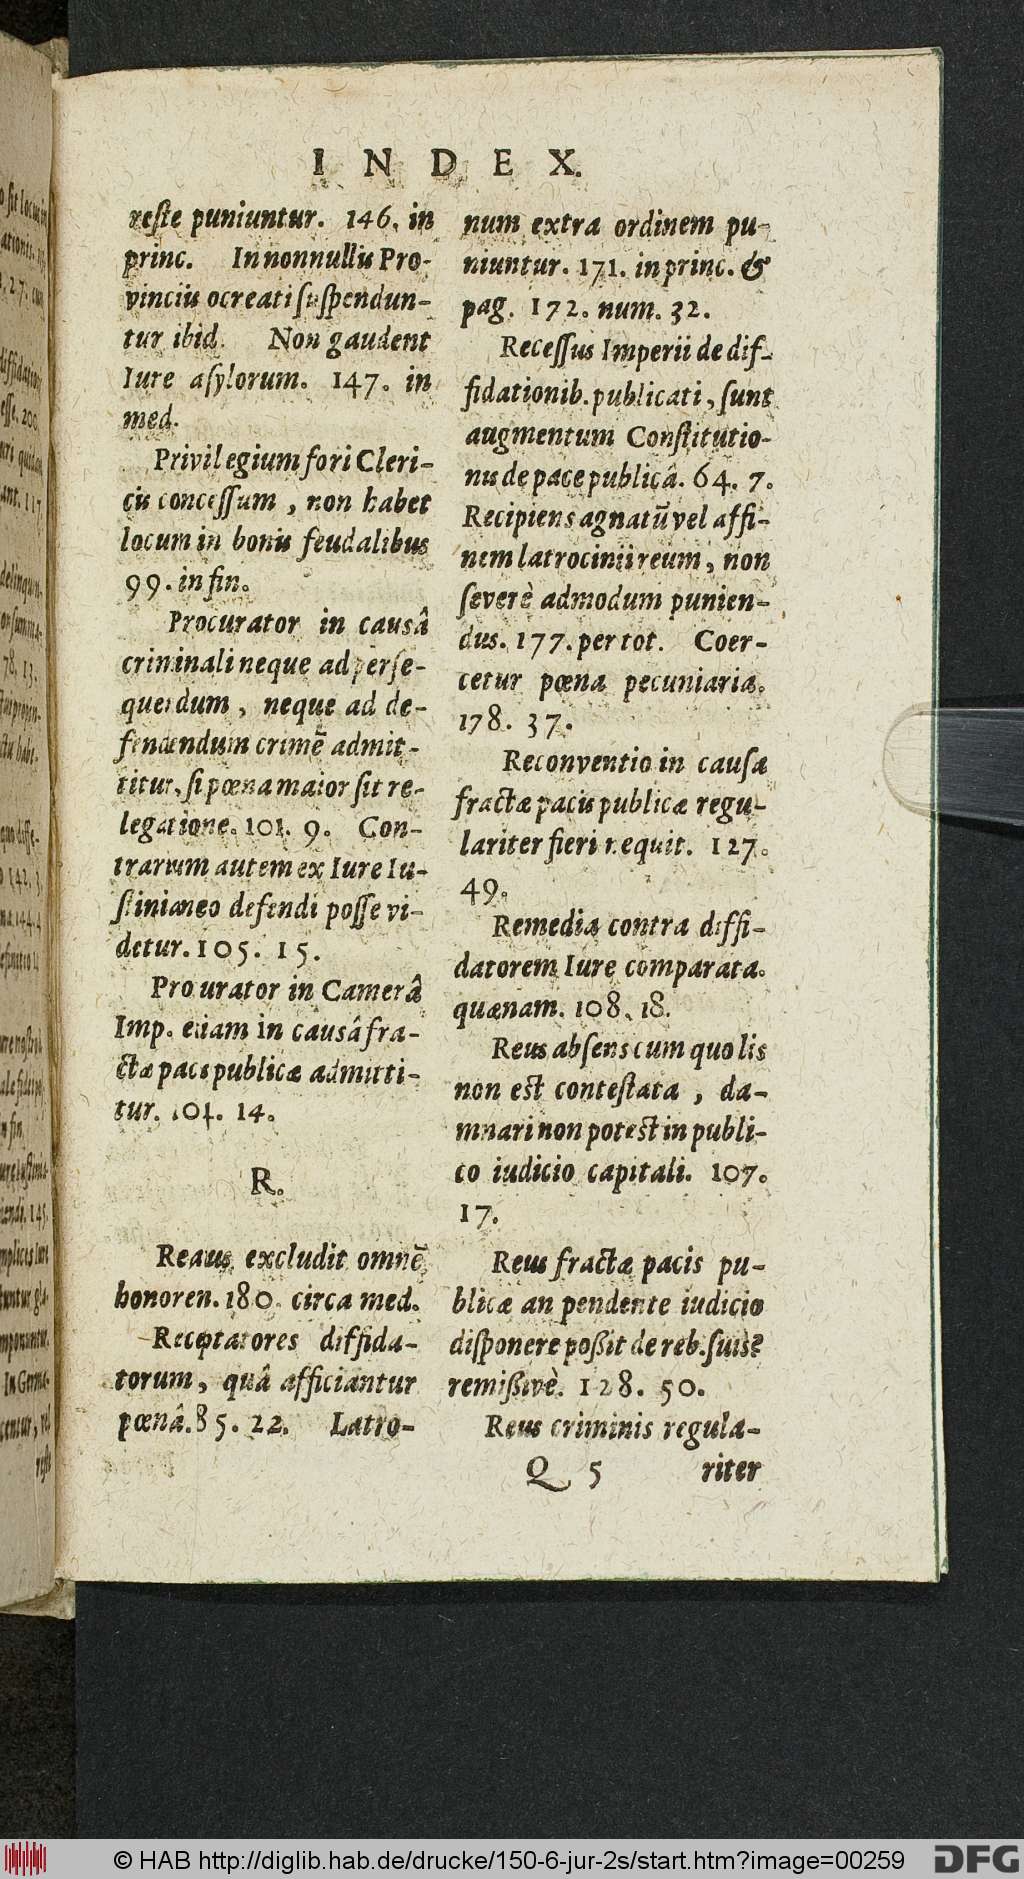 INDEX.
reſte puniuntur. 146. in
princ. In nonnullis Pro-
vinciis ocreati ſuſpendun-
tur ibid. Non gaudent
Iure aſylorum. 147. in
med.
Privilegium fori Cleri-
cis conceſſum, non habet
locum in bonis feudalibus
99. in fin.
Procurator in causâ
criminali neque ad perſe-
quendum, neque ad de-
fendendum crimē admit-
titur, ſi pœna maior ſit re-
legatione. 101. 9. Con-
trarium autem ex Iure Iu-
ſtinianeo defendi poſſe vi-
detur. 105. 15.
Pro urator in Camerâ
Imp. etiam in causâ fra-
ctæ pacis publicæ admitti-
tur. 104. 14.
R.
Reatus excludit omnē
honorem. 180. circa med.
Receptatores diffida-
torum, quâ afficiantur
pœnâ. 85. 22. Latro-
num extra ordinem pu-
niuntur. 171. in princ. &
pag. 172. num. 32.
Receſſus Imperii de dif-
fidationib. publicati, ſunt
augmentum Conſtitutio-
nis de pace publicâ. 64. 7.
Recipiens agnatū vel affi-
nem latrocinii reum, non
ſeverè admodum punien-
dus. 177. per tot. Coer-
cetur pœna pecuniaria.
178. 37.
Reconventio in causæ
fractæ pacis publicæ regu-
lariter fieri nequit. 127.
49.
Remedia contra diffi-
datorem Iure comparata.
quænam. 108. 18.
Reus abſens cum quo lis
non est conteſtata, da-
mnari non poteſt in publi-
co iudicio capitali. 107.
17.
Reus fractæ pacis pu-
blicæ an pendente iudicio
diſponere poßit de reb. ſuis?
remißivè. 128. 50.
Reus criminis regula-
Q 5 riter
© HAB http://diglib.hab.de/drucke/150-6-jur-2s/start.htm?image=00259
DFG